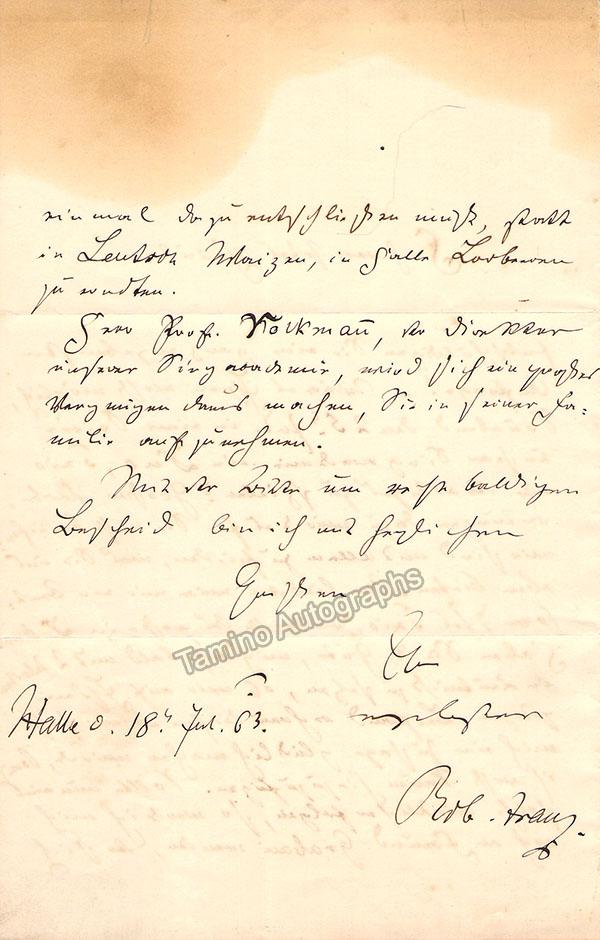 einmal dazu entschließen müßt, statt
in Leutsch Maizen, in Halle Lorbeeren
zu erndten.
Herr Prof. Volkmann, der Direktor
unserer Singacademie, wird sich ein großes
Vergnügen daraus machen, Sie in seiner Fa-
milie aufzunehmen.
Mit der Bitte um recht baldigen
Bescheid bin ich mit herzlichen
Grüßen
Ihr
ergebenster
Halle d. 18t Jul. 63.
Rob. Franz.
Tamino Autographs